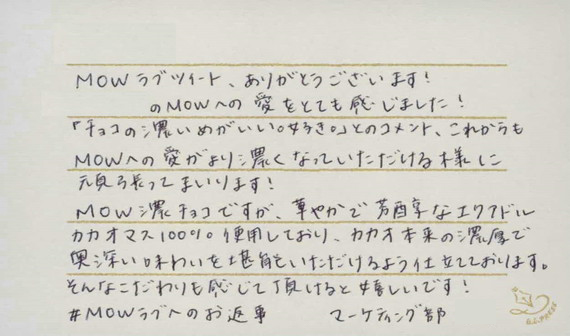 MOWラブツイート、ありがとうございます!
のMOWへの愛をとても感じました!
「チョコの濃いめがいい。好き。」とのコメント、これからも
MOWへの愛がより濃くなっていただける様に
頑張ってまいります!
MOW濃チョコですが、華やかで芳醇なエクアドル
カカオマス100%使用しており、カカオ本来の濃厚で
奥深い味わいを堪能いただけるよう仕立てております。
そんなこだわりも感じて頂けると嬉しいです!
#MOWラブへのお返事 マーケティング部